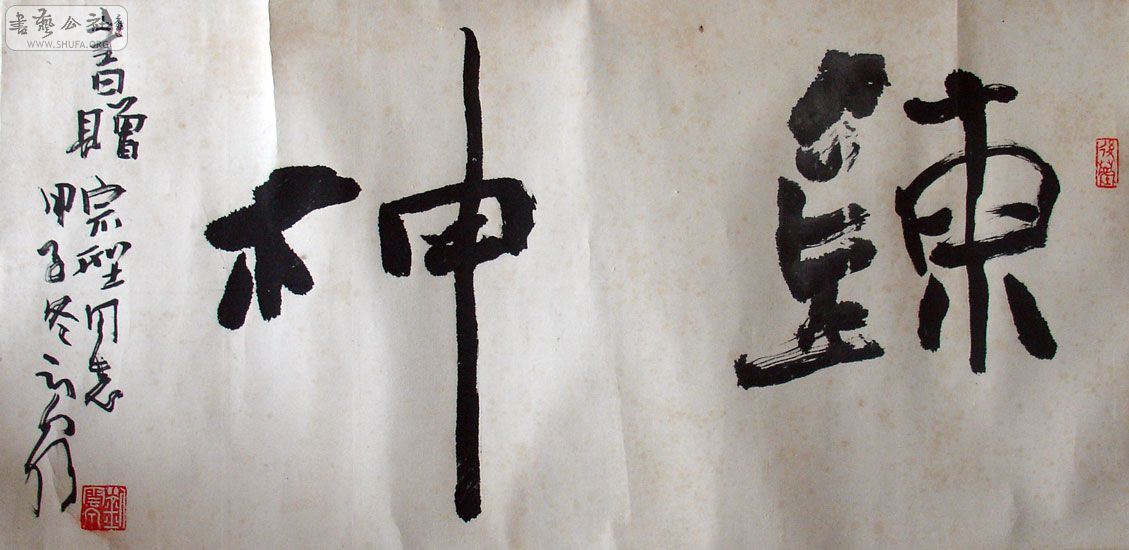 鍊神
書贈
宗聖同志
甲子冬
書藝公社
WWW.SHUFA.ORG